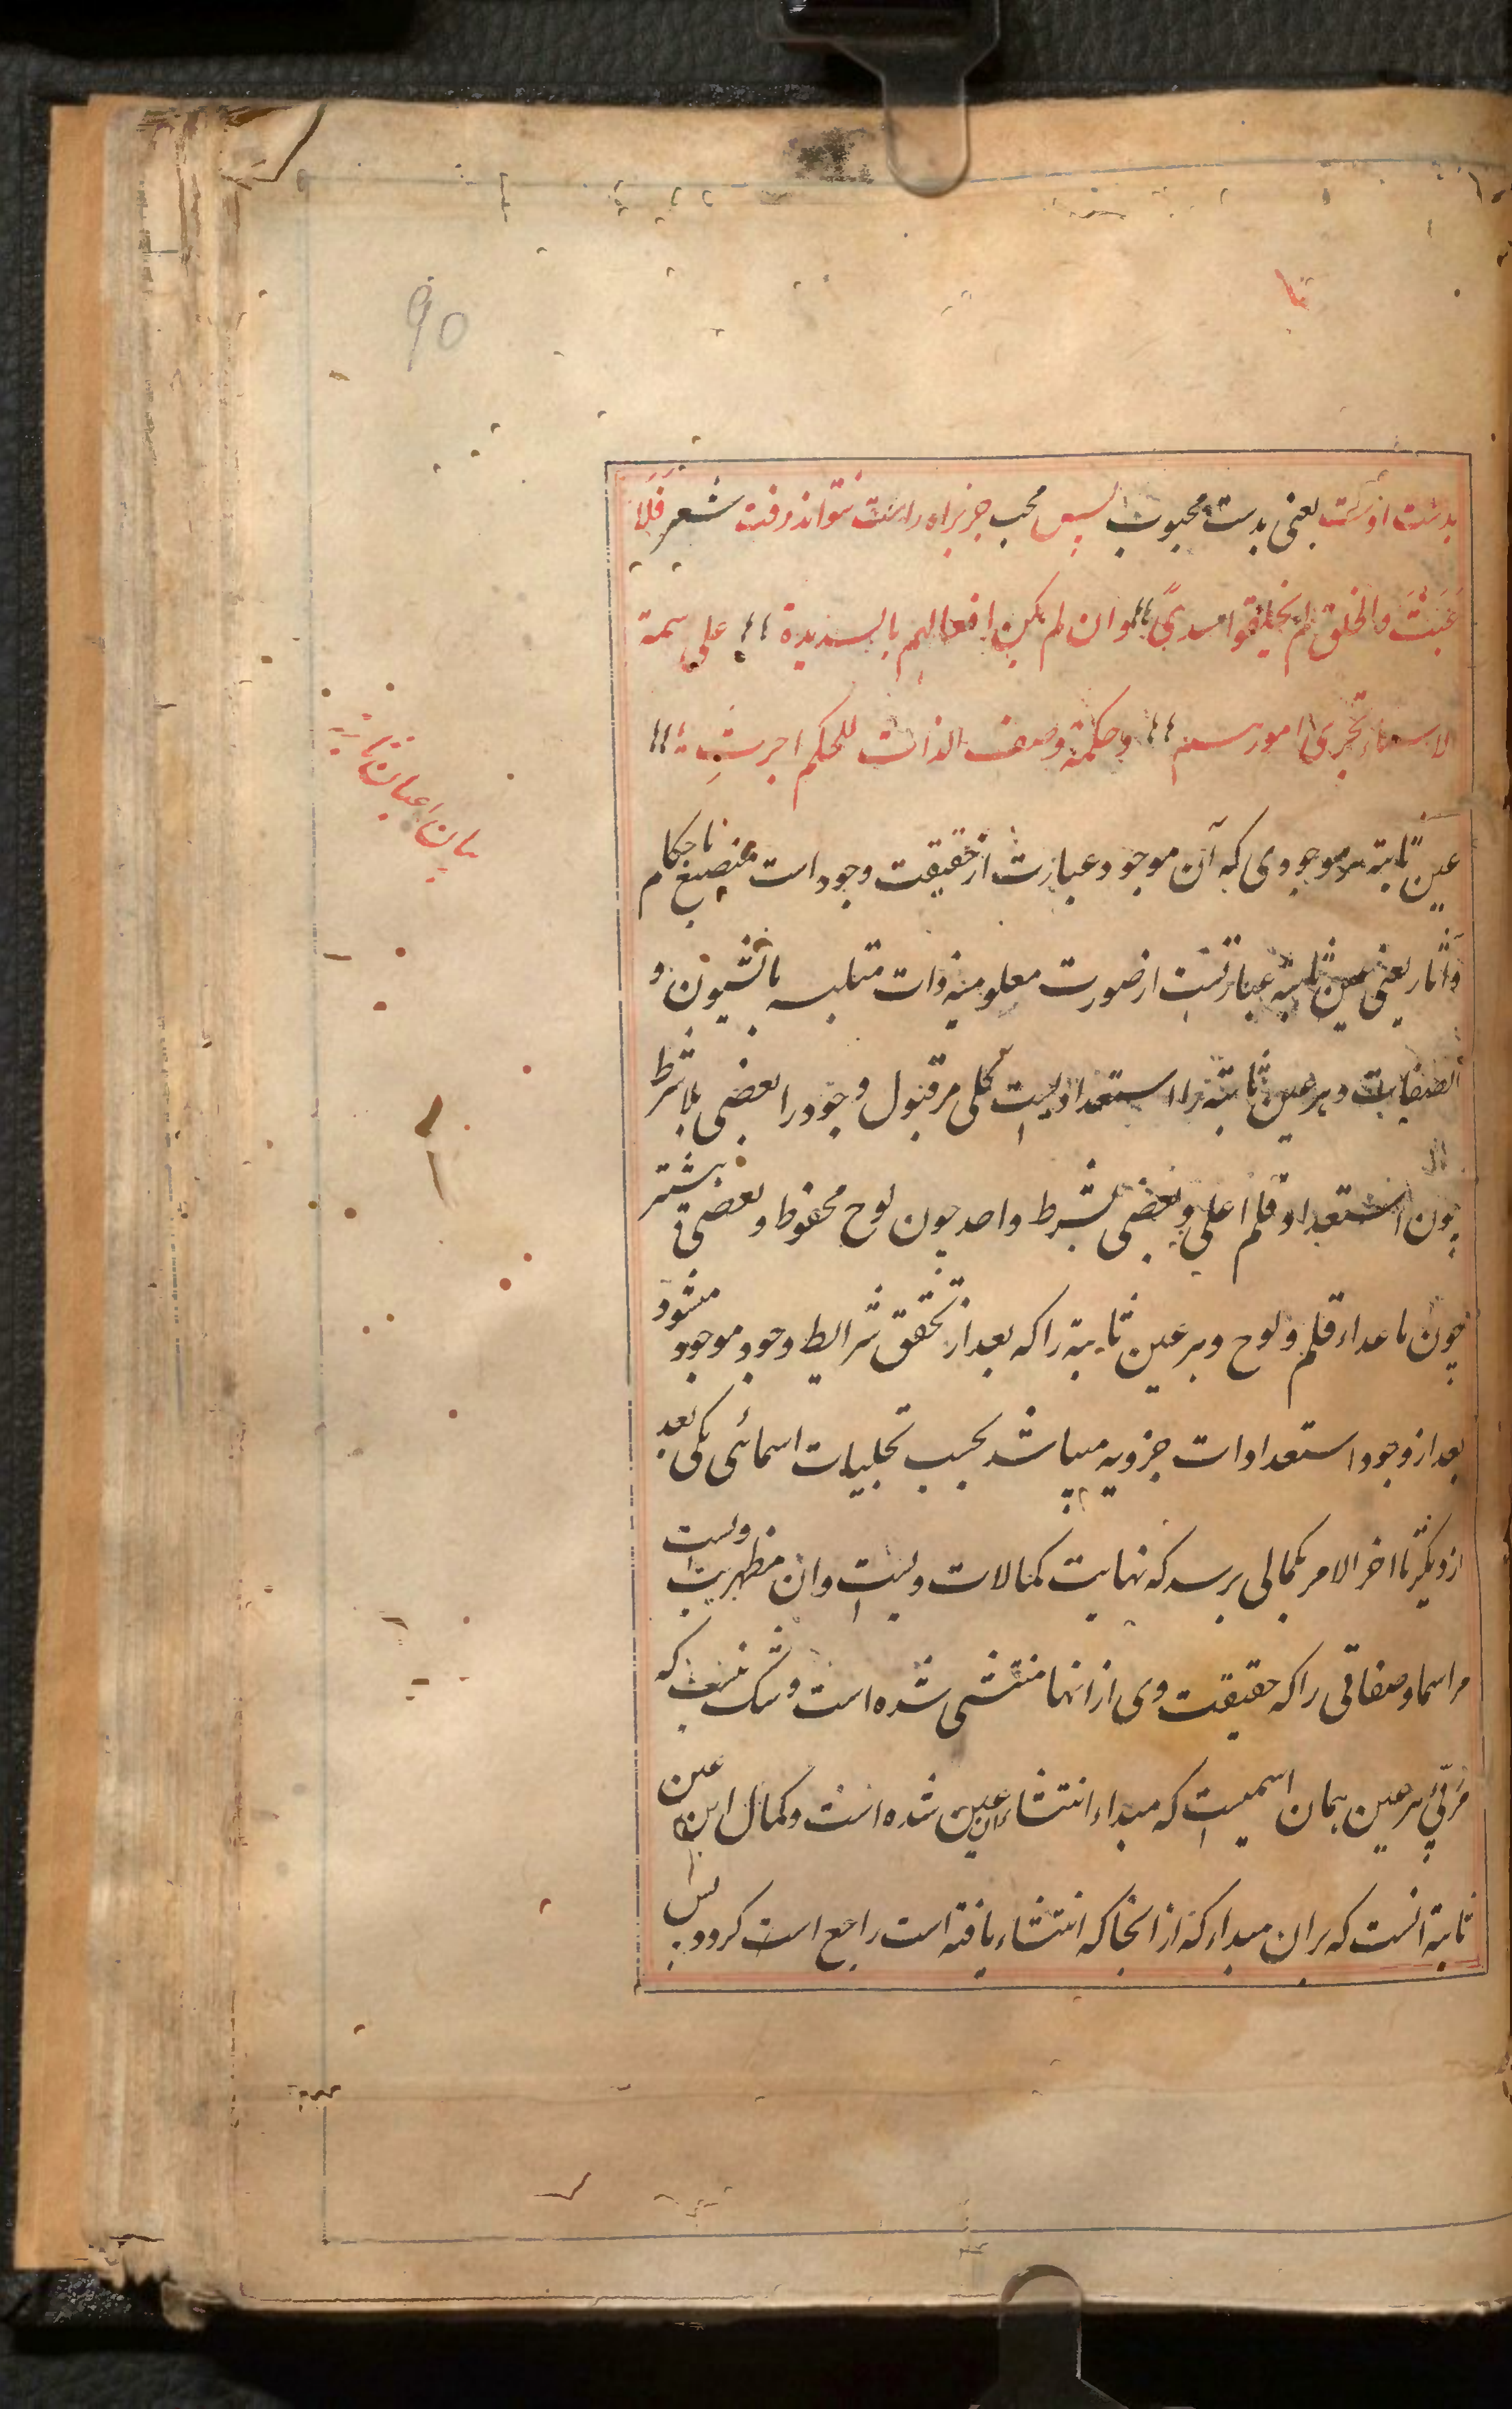 90
بدست اوست یعنی بدست محبوب پس محب جز براه راست نتواند رفت شعر فلا
عبث والخلق لم یخلقوا سدیً وان لم یکن افعالهم بالسدیدة علی سمة
الاسماء تجری امورهم وحکمة وصف الذات للحکم اجرتِ
عین ثابته هر موجودی که آن موجود عبارت از حقیقت وجود است منصبغ باحکام
وآثار یعنی عین ثابته عبارتست از صورت معلومیه ذات متلبسه بالشیون و
الصفات و هر عین ثابته را استعدادیست کلی مر قبول وجود را بعضی بلا شرط
چون استعداد قلم اعلی و بعضی بشرط واحد چون لوح محفوظ و بعضی بیشتر
چون ماعداء قلم و لوح و هر عین ثابته را که بعد از تحقق شرایط وجود موجود میشود
بعد از وجود استعدادات جزویه میباشد بحسب تجلیات اسمائی یکی بعد
از دیگر تا اخر الامر بکمالی برسد که نهایت کمالات ویست وان مظهریت ویست
مر اسما و صفاتی را که حقیقت وی از انها منتشی شده است و شک نیست که
مربّی هر عین همان اسمیست که مبداء انتشاء ان عین شده است و کمال این عین
ثابته انست که بران مبداء که از انجا که انتشاء یافته است راجع است کرود پس
بیان اعیان ثابته